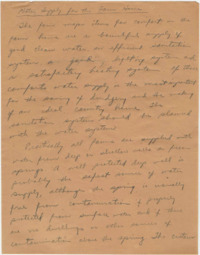 Water Supply for a Farm Home
The four major items for comfort in the
farm home are a bountiful supply of
good clean water, an efficient sanitation
system, a good lighting system and
a satisfactory heating system. Of these
comforts water supply is the most essential
for the saving of drudgery and the making
of an ideal country home. The
sanitation system should be planned
with the water system.
Practically all farms are supplied with
water from deep or shallow wells or from
springs. A well protected deep well is
probably the safest source of water
supply, although the spring is usually
free from contamination if properly
protected from surface wash and if there
are no dwellings or other sources of
contamination above the spring. The